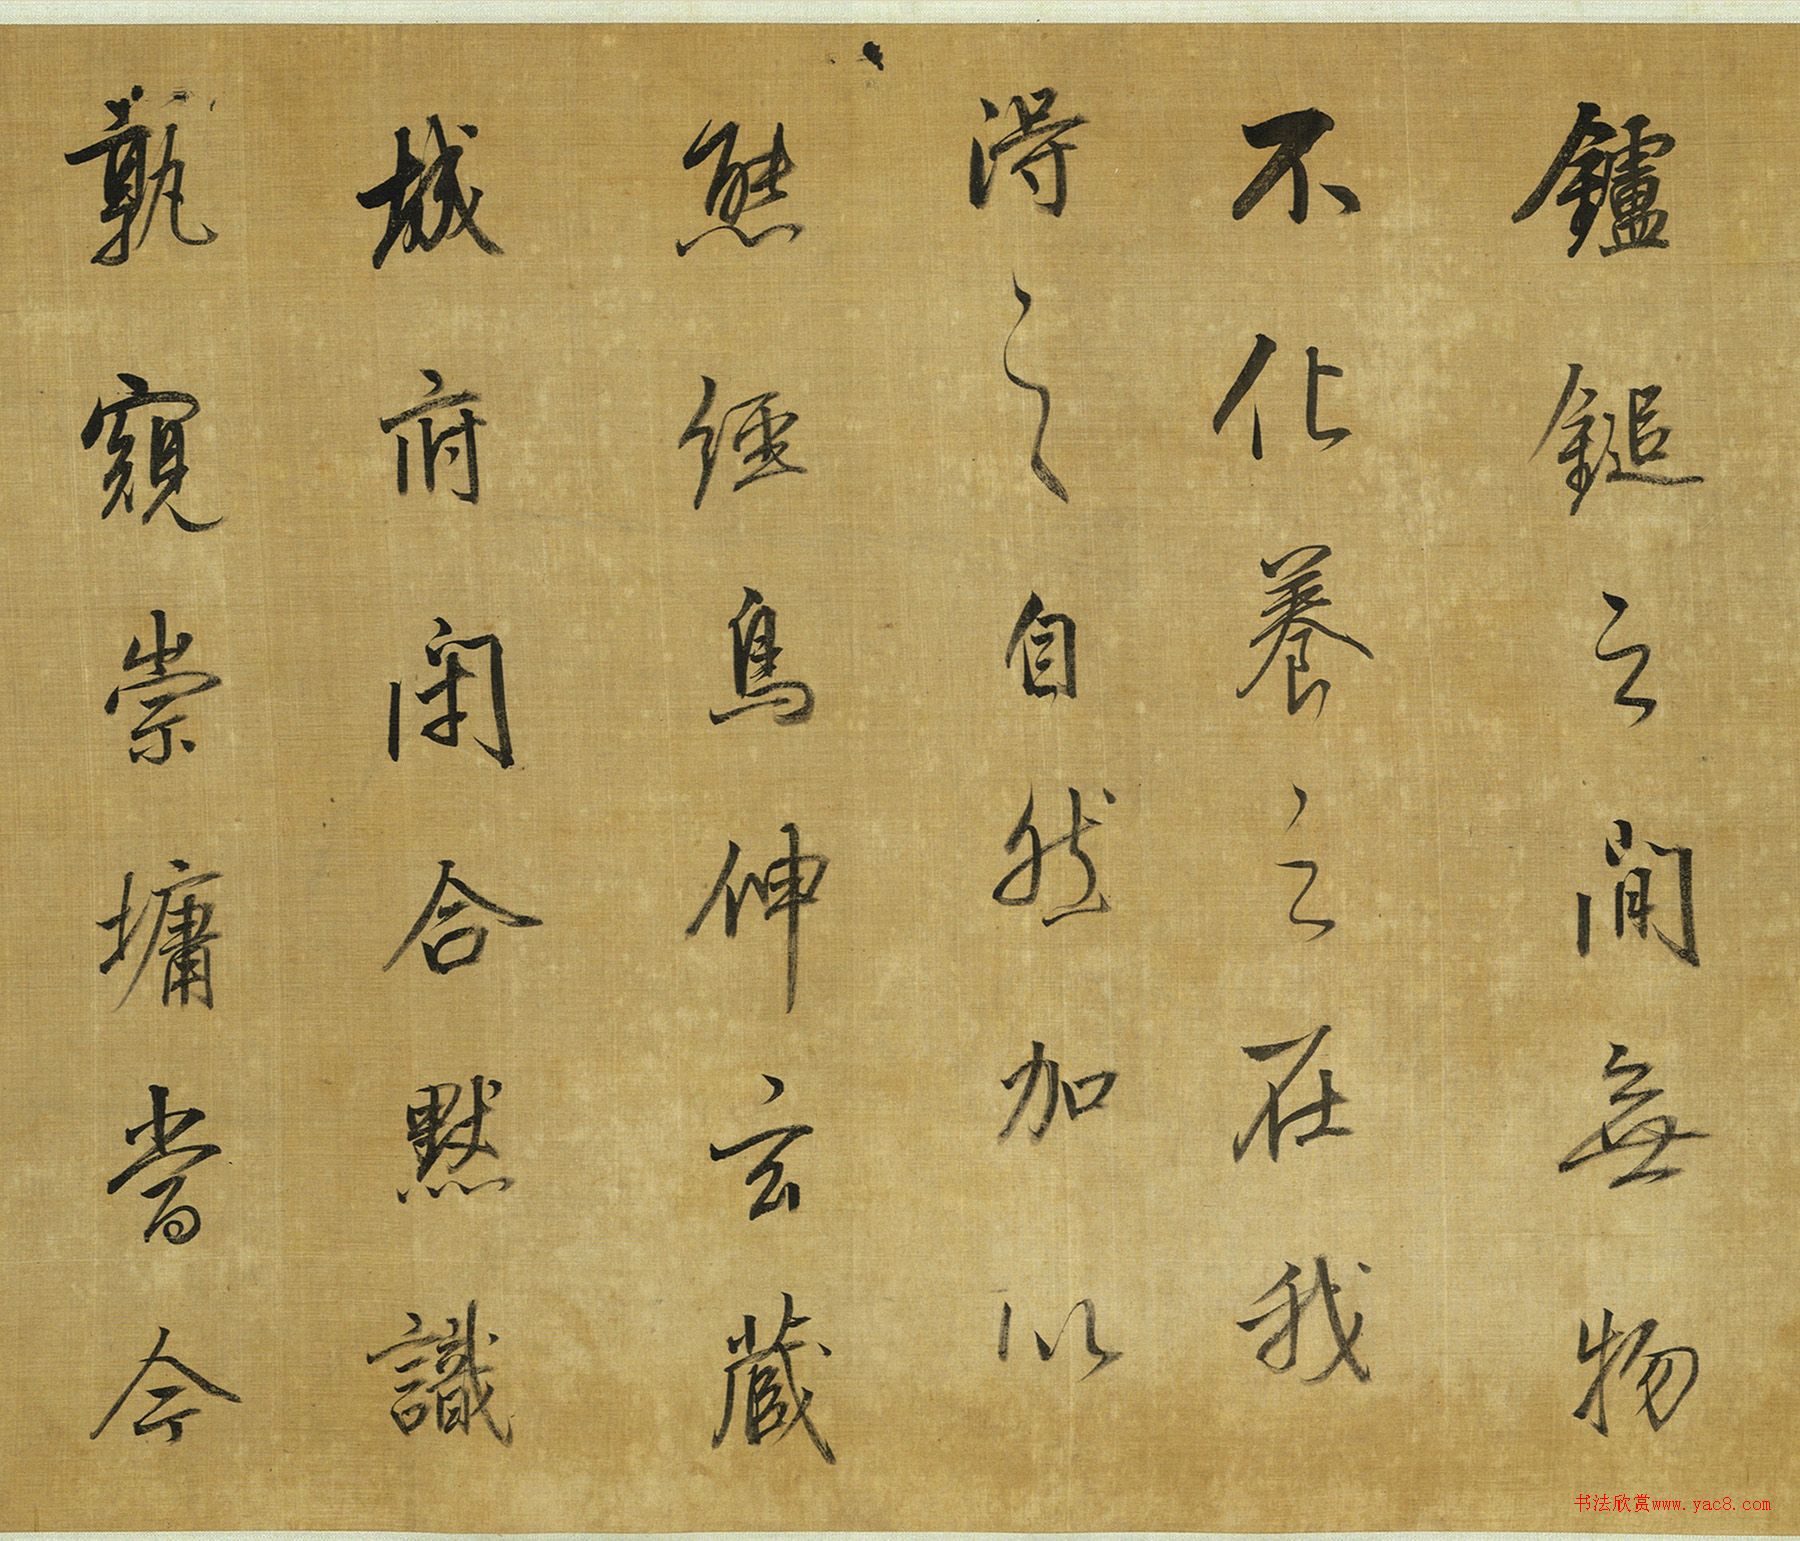 鑪鎚之間無物
不化養之在我
得之自然加以
熊經鳥伸玄藏
城府閉合默識
孰窺崇墉嘗今
书法欣赏www.yac8.com